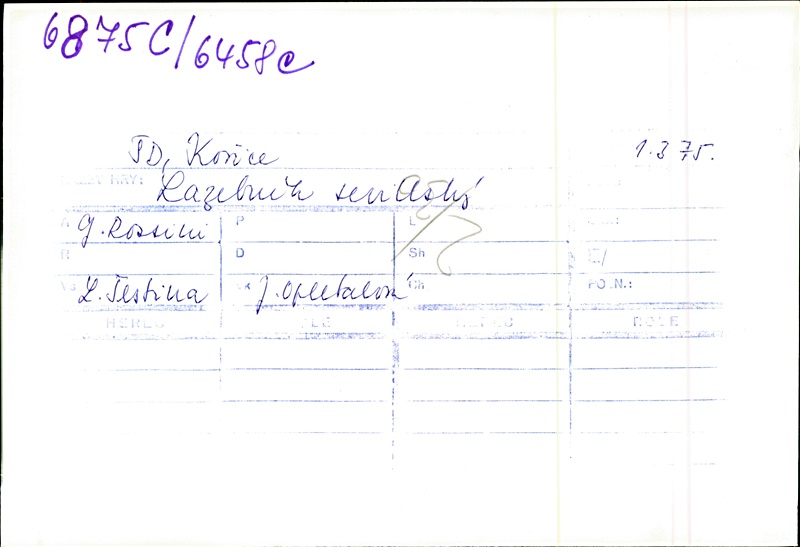 6875C/6458c
ŠD, Košice 1.3 75.
HRY: Lazebník sevillský
A G. Rossini P L
R D Sh
L. Testina J. Opletalová Ch PO.N.:
HEREC ROLE HEREC ROLE